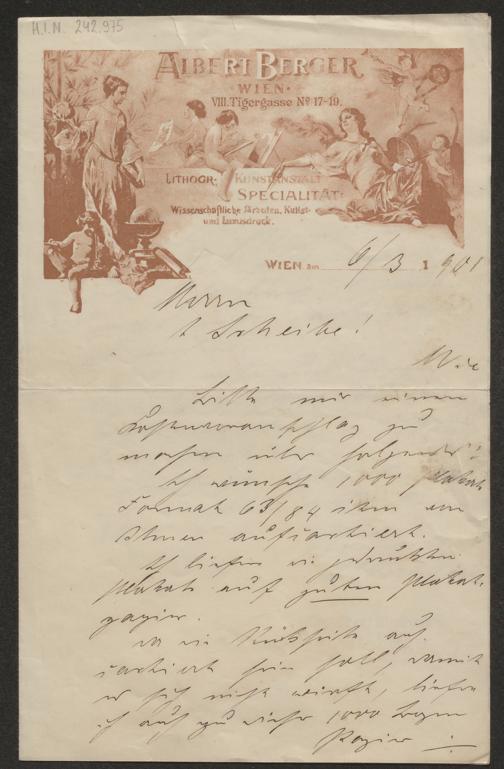 H.I.N. 242.975
ALBERT BERGER
WIEN
VIII. Tigergasse No 17-19.
LITHOGR. KUNSTANSTALT
SPECIALITÄT:
Wissenschaftliche Arbeiten, Kunst-
und Luxusdruck.
WIEN am 6/3 1901
Herrn
Scheibe!
Wien
Bitte mir einen
Kostenvoranschlag zu
machen über folgendes:
Ich wünsche 1000 Plakate
Format 63/84 von
Ihnen aufcachiert.
Ich liefere die gedruckten
Plakate auf guten Plakat-
papier.
Da die Rückseite auch
cachiert sein soll, damit
er sich nicht wirft, liefere
ich auch zu dieser 1000 Bogen
Papier